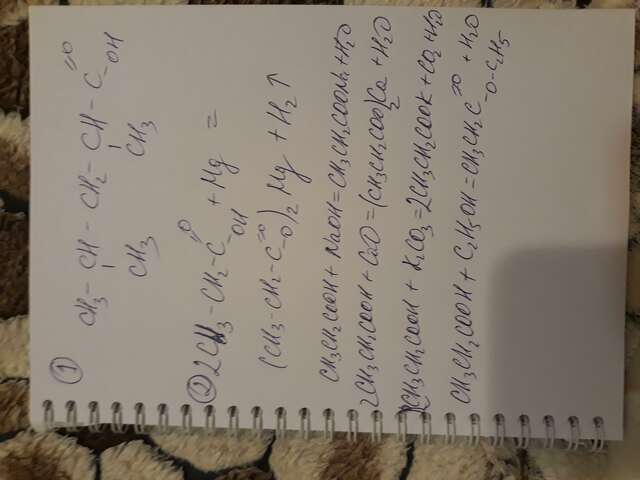 ① CH3 - CH - CH2 - CH - C =O - OH
CH3 CH3
② 2CH3 - CH2 - C =O - OH + Mg =
(CH3 - CH2 - C =O - O)2 Mg + H2↑
CH3CH2COOH + NaOH = CH3CH2COONa + H2O
2CH3CH2COOH + CaO = (CH3CH2COO)2Ca + H2O
2CH3CH2COOH + K2CO3 = 2CH3CH2COOK + CO2 + H2O
CH3CH2COOH + C2H5OH = CH3CH2C =O - O - C2H5 + H2O